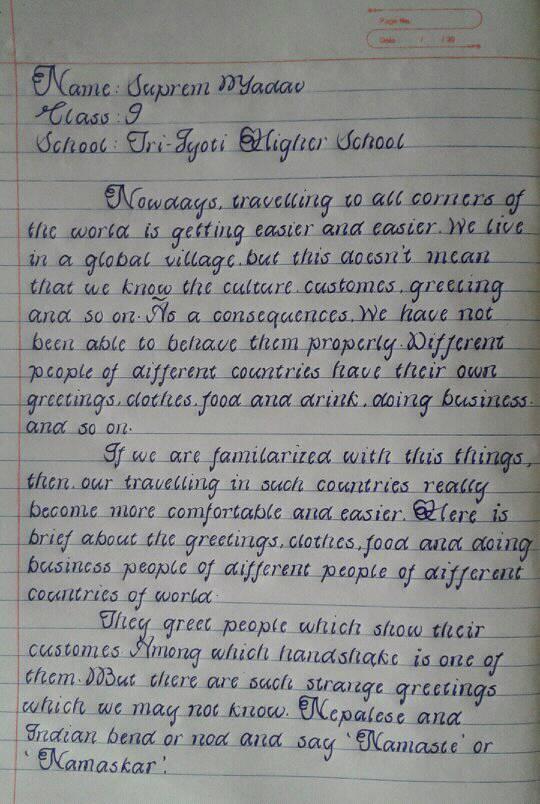 Page No.
Date / / 20
Name: Suprem Yadav
Class: 9
School: Tri-Jyoti Higher School
Nowdays, travelling to all corners of
the world is getting easier and easier. We live
in a global village. but this doesn't mean
that we know the culture. customes, greeting
and so on. As a consequences, We have not
been able to behave them properly. Different
people of different countries have their own
greetings, clothes, food and drink, doing business.
and so on.
If we are familarized with this things,
then, our travelling in such countries really
become more comfortable and easier. Here is
brief about the greetings, clothes, food and doing
business people of different people of different
countries of world.
They greet people which show their
customes Among which handshake is one of
them. But there are such strange greetings
which we may not know. Nepalese and
Indian bend or nod and say 'Namaste' or
'Namaskar'.